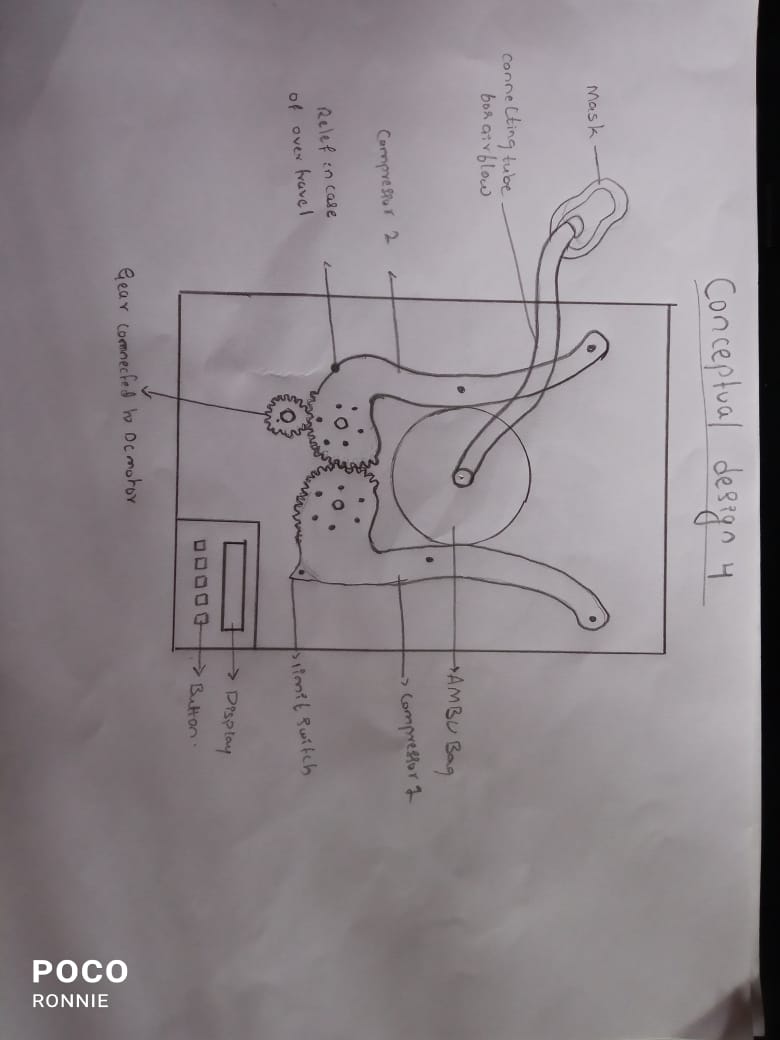 Conceptual design 4
Mask
connecting tube
for airflow
Compressor 2
Relief in case
of over travel
Gear connected to DC motor
AMBU Bag
Compressor 1
limit switch
Display
Button.
POCO
RONNIE